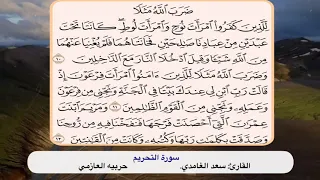 ضَرَبَ ٱللَّهُ مَثَلًا
لِّلَّذِينَ كَفَرُوا۟ ٱمْرَأَتَ نُوحٍ وَٱمْرَأَتَ لُوطٍ ۖ كَانَتَا تَحْتَ
عَبْدَيْنِ مِنْ عِبَادِنَا صَـٰلِحَيْنِ فَخَانَتَاهُمَا فَلَمْ يُغْنِيَا عَنْهُمَا
مِنَ ٱللَّهِ شَيْـًٔا وَقِيلَ ٱدْخُلَا ٱلنَّارَ مَعَ ٱلدَّٰخِلِينَ ١٠
وَضَرَبَ ٱللَّهُ مَثَلًا لِّلَّذِينَ ءَامَنُوا۟ ٱمْرَأَتَ فِرْعَوْنَ إِذْ
قَالَتْ رَبِّ ٱبْنِ لِى عِندَكَ بَيْتًا فِى ٱلْجَنَّةِ وَنَجِّنِى مِن فِرْعَوْنَ
وَعَمَلِهِۦ وَنَجِّنِى مِنَ ٱلْقَوْمِ ٱلظَّـٰلِمِينَ ١١ وَمَرْيَمَ ٱبْنَتَ
عِمْرَٰنَ ٱلَّتِىٓ أَحْصَنَتْ فَرْجَهَا فَنَفَخْنَا فِيهِ مِن رُّوحِنَا
وَصَدَّقَتْ بِكَلِمَـٰتِ رَبِّهَا وَكُتُبِهِۦ وَكَانَتْ مِنَ ٱلْقَـٰنِتِينَ ١٢
سورة التحريم
القارئ: سعد الغامدي. حربيه العازمي